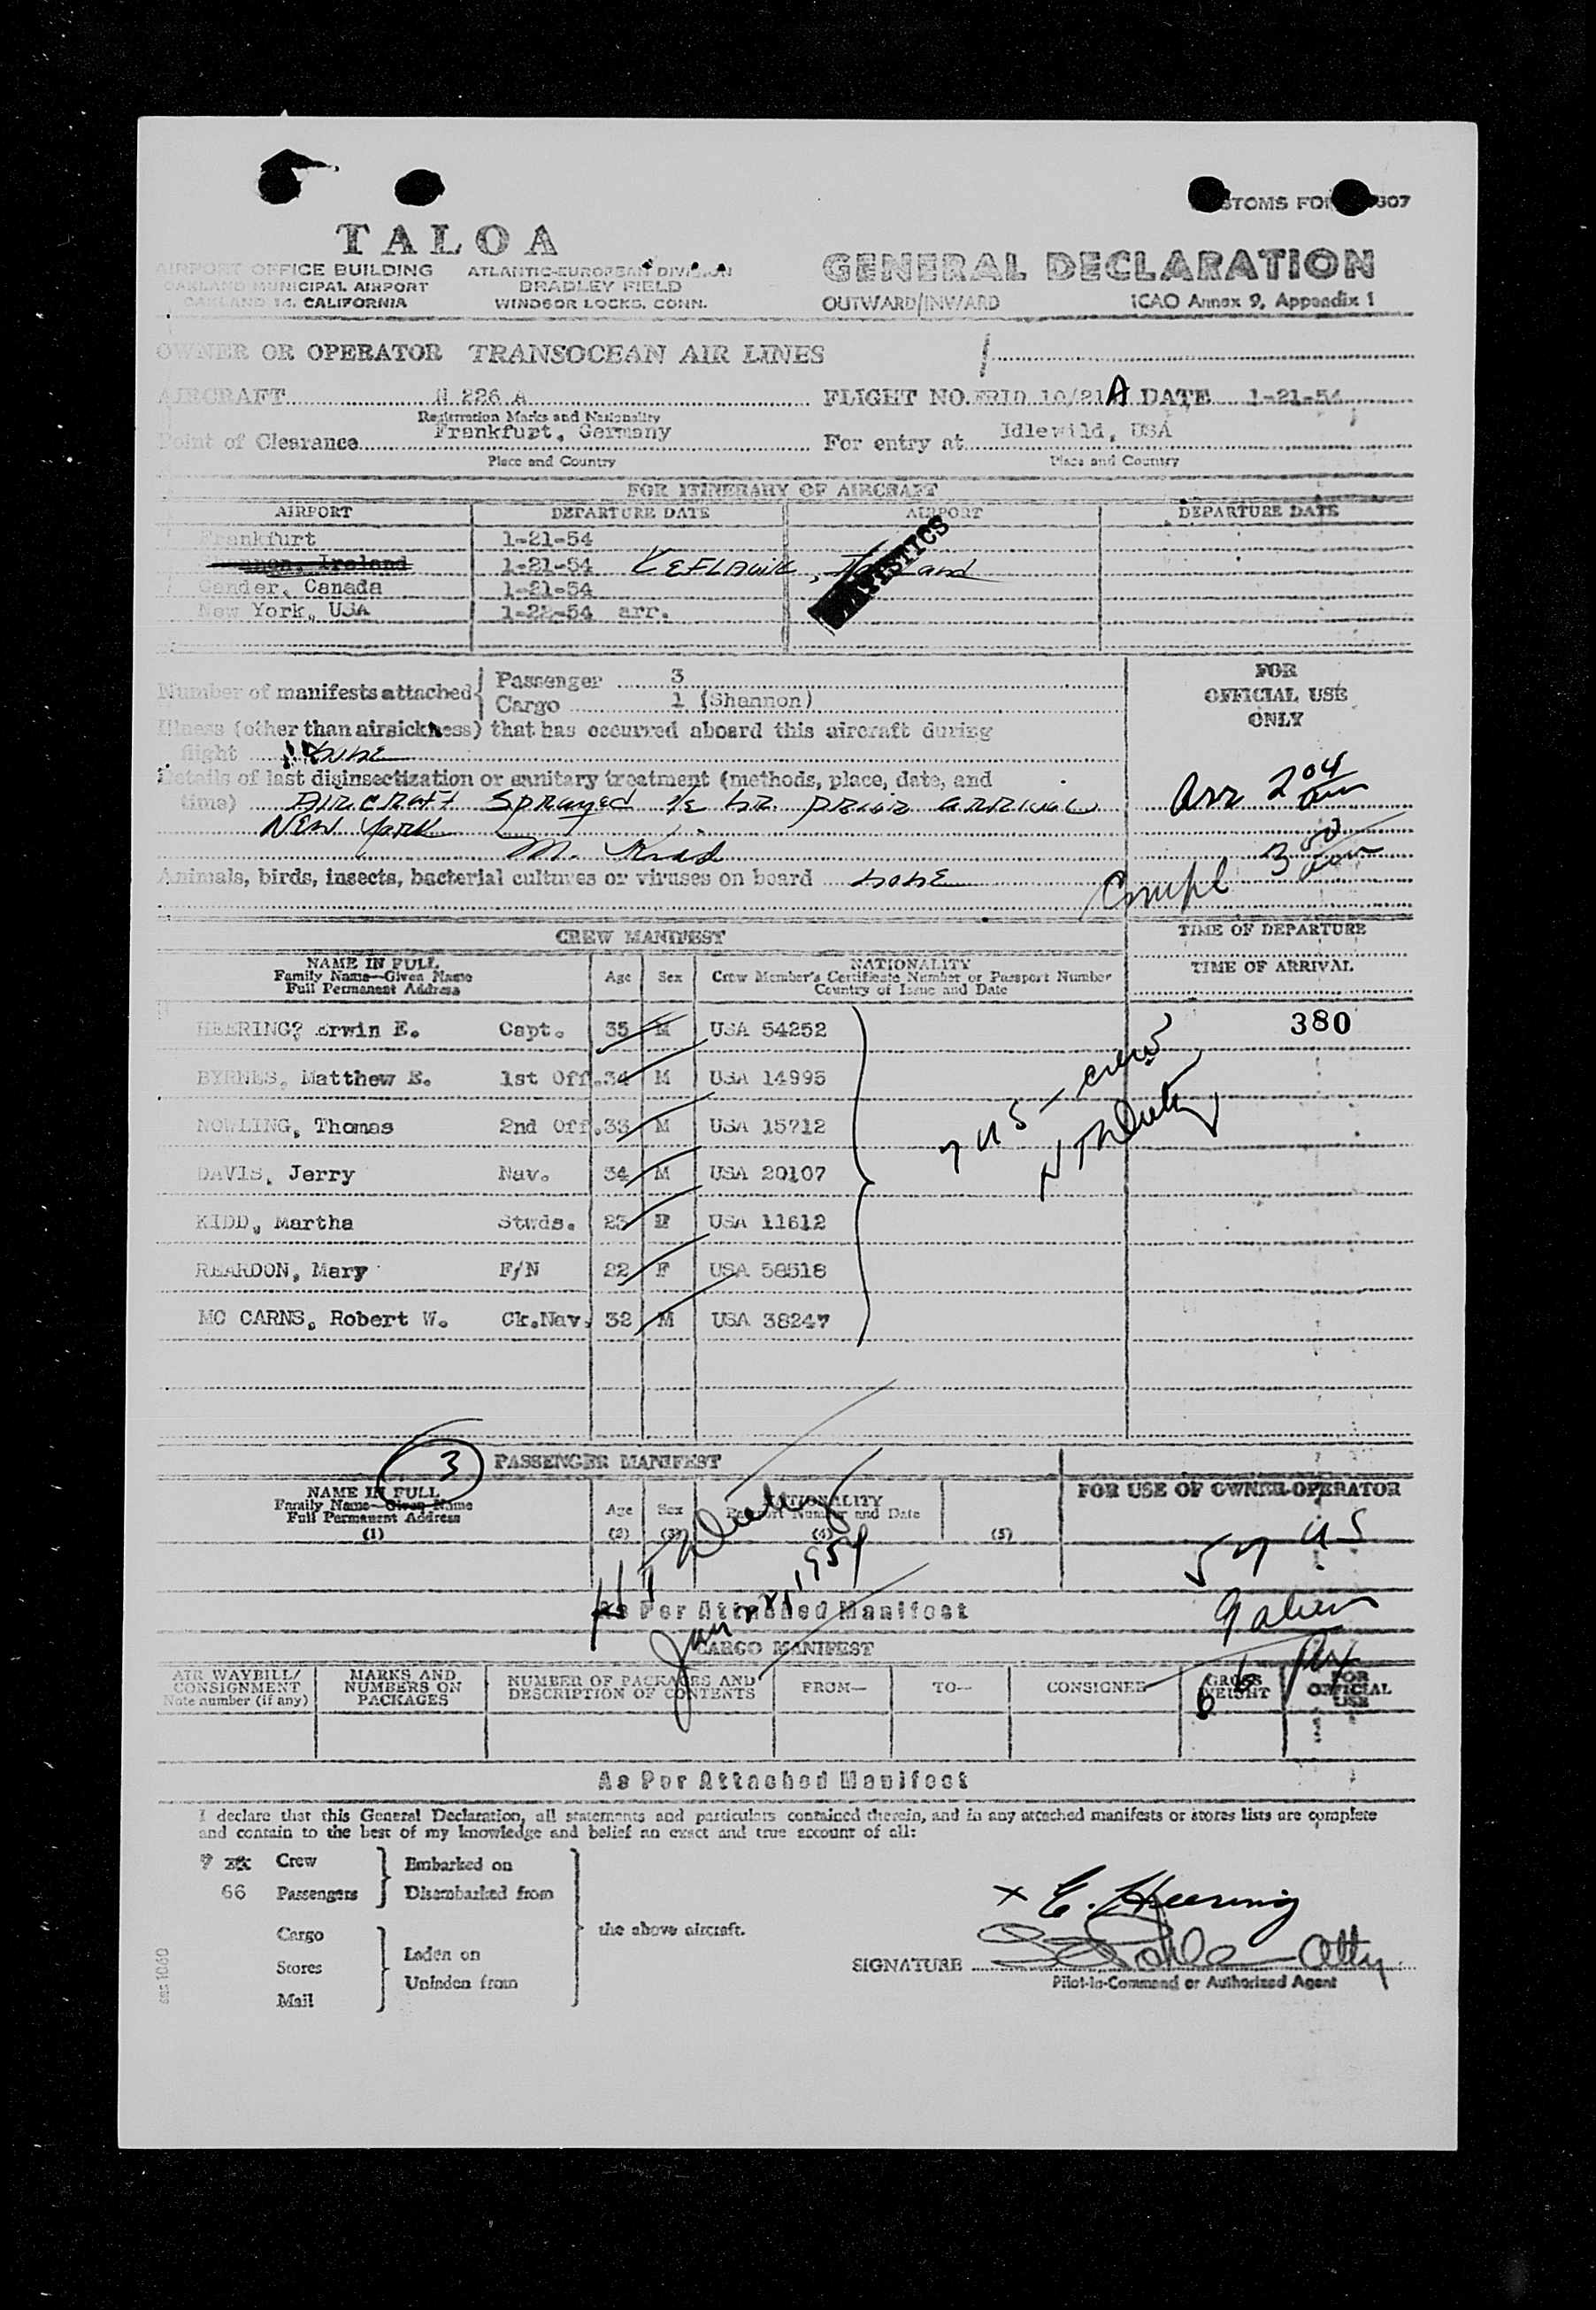 CUSTOMS FORM 7507
TALOA
AIRPORT OFFICE BUILDING
OAKLAND MUNICIPAL AIRPORT
OAKLAND 14, CALIFORNIA
ATLANTIC-EUROPEAN DIVISION
BRADLEY FIELD
WINDSOR LOCKS, CONN.
GENERAL DECLARATION
OUTWARD/INWARD ICAO Annex 9, Appendix 1
OWNER OR OPERATOR TRANSOCEAN AIR LINES
AIRCRAFT N 226 A FLIGHT NO. FRID 10/21A DATE 1-21-54
Registration Marks and Nationality
Point of Clearance Frankfurt, Germany For entry at Idlewild, USA
Place and Country Place and Country
FOR ITINERARY OF AIRCRAFT
AIRPORT DEPARTURE DATE AIRPORT DEPARTURE DATE
Frankfurt 1-21-54
Shannon, Ireland 1-21-54 KEFLAVIK,
STATISTICS
Gander, Canada 1-21-54
New York, USA 1-22-54 arr.
Number of manifests attached Passenger 3
Cargo 1 (Shannon)
FOR
OFFICIAL USE
ONLY
Illness (other than airsickness) that has occurred aboard this aircraft during
flight None
Details of last disinsectization or sanitary treatment (methods, place, date, and
time) AIRCRAFT Sprayed ½ hr. prior arrival
NEW York
M. Kidd
Arr 2 04 am
Animals, birds, insects, bacterial cultures or viruses on board none
Compl 3 50 am
CREW MANIFEST
TIME OF DEPARTURE
TIME OF ARRIVAL
NAME IN FULL
Family Name—Given Name
Full Permanent Address
Age Sex
NATIONALITY
Crew Member's Certificate Number or Passport Number
Country of Issue and Date
HEERING? Erwin E. Capt. 35 M USA 54252
380
BYRNES, Matthew E. 1st Off. 34 M USA 14995
NOWLING, Thomas 2nd Off. 33 M USA 15712
DAVIS, Jerry Nav. 34 M USA 20107
KIDD, Martha Stwds. 23 F USA 11612
REARDON, Mary F/N 22 F USA 58518
MC CARNS, Robert W. Ck.Nav. 32 M USA 38247
7 US crew
3
PASSENGER MANIFEST
NAME IN FULL
Family Name—Given Name
Full Permanent Address
(1)
Age
(2)
Sex
(3)
NATIONALITY
Passport Number and Date
(4)
(5)
FOR USE OF OWNER-OPERATOR
57 US
9 alien
66
Jan 22, 1954
As Per Attached Manifest
CARGO MANIFEST
AIR WAYBILL/
CONSIGNMENT
Note number (if any)
MARKS AND
NUMBERS ON
PACKAGES
NUMBER OF PACKAGES AND
DESCRIPTION OF CONTENTS
FROM—
TO—
CONSIGNEE
GROSS
WEIGHT
FOR
OFFICIAL
USE
As Per Attached Manifest
I declare that this General Declaration, all statements and particulars contained therein, and in any attached manifests or stores lists are complete
and contain to the best of my knowledge and belief an exact and true account of all:
7 Crew
66 Passengers
Embarked on
Disembarked from
Cargo
Stores
Mail
Laden on
Unladen from
the above aircraft.
x E. Heering
SIGNATURE Atty
Pilot-in-Command or Authorized Agent
sms 1060